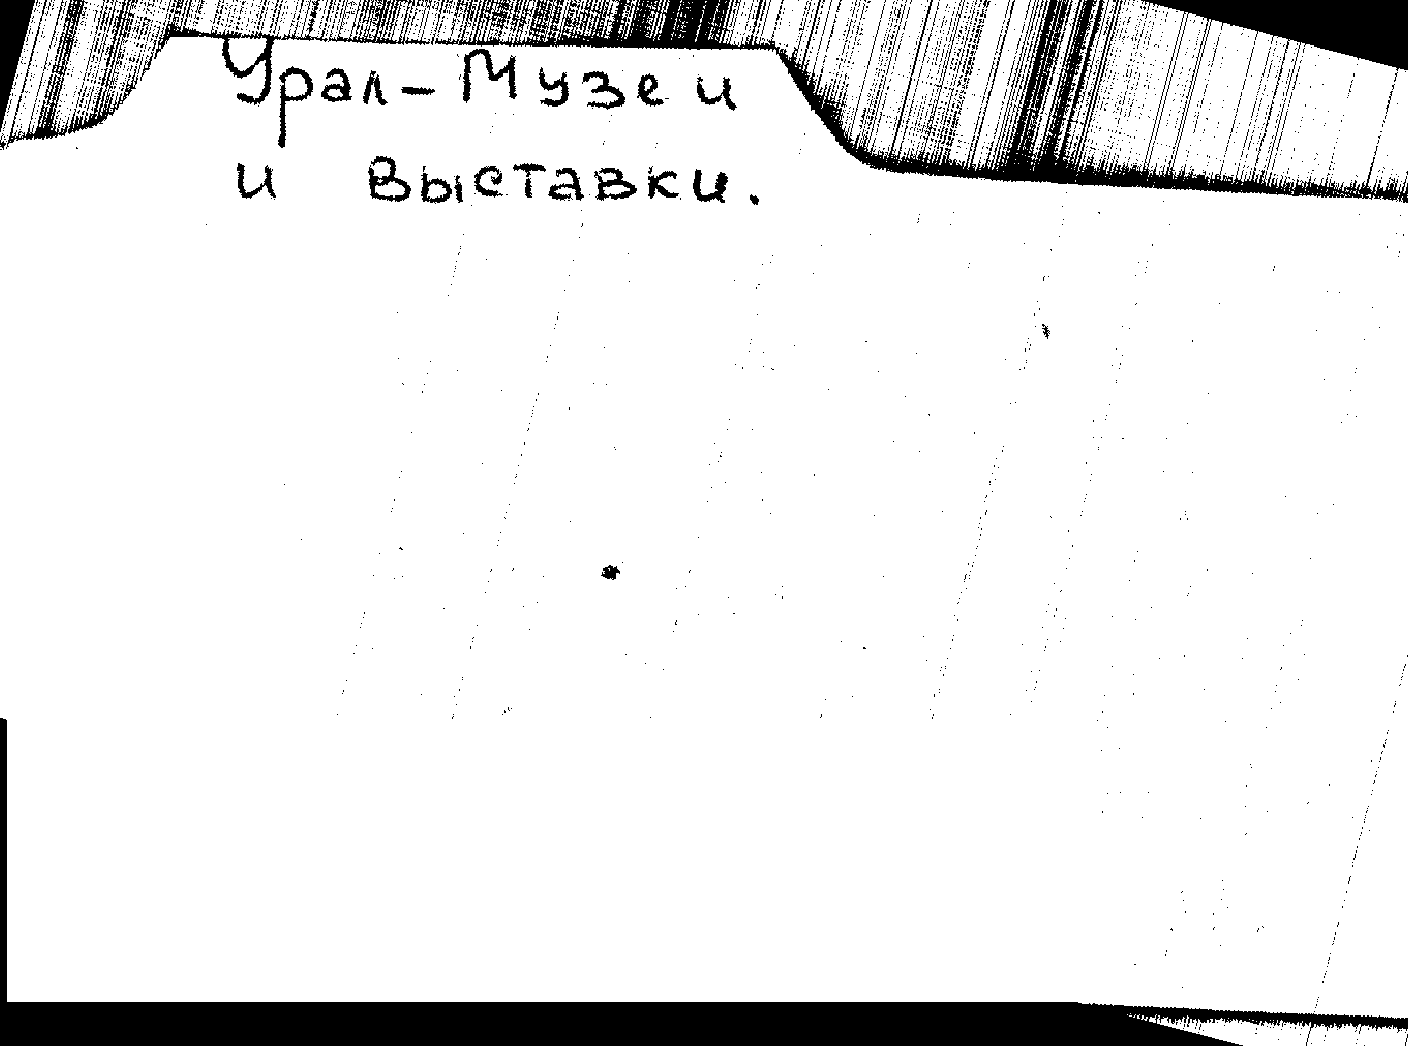 Урал-Музеи
и выставки.